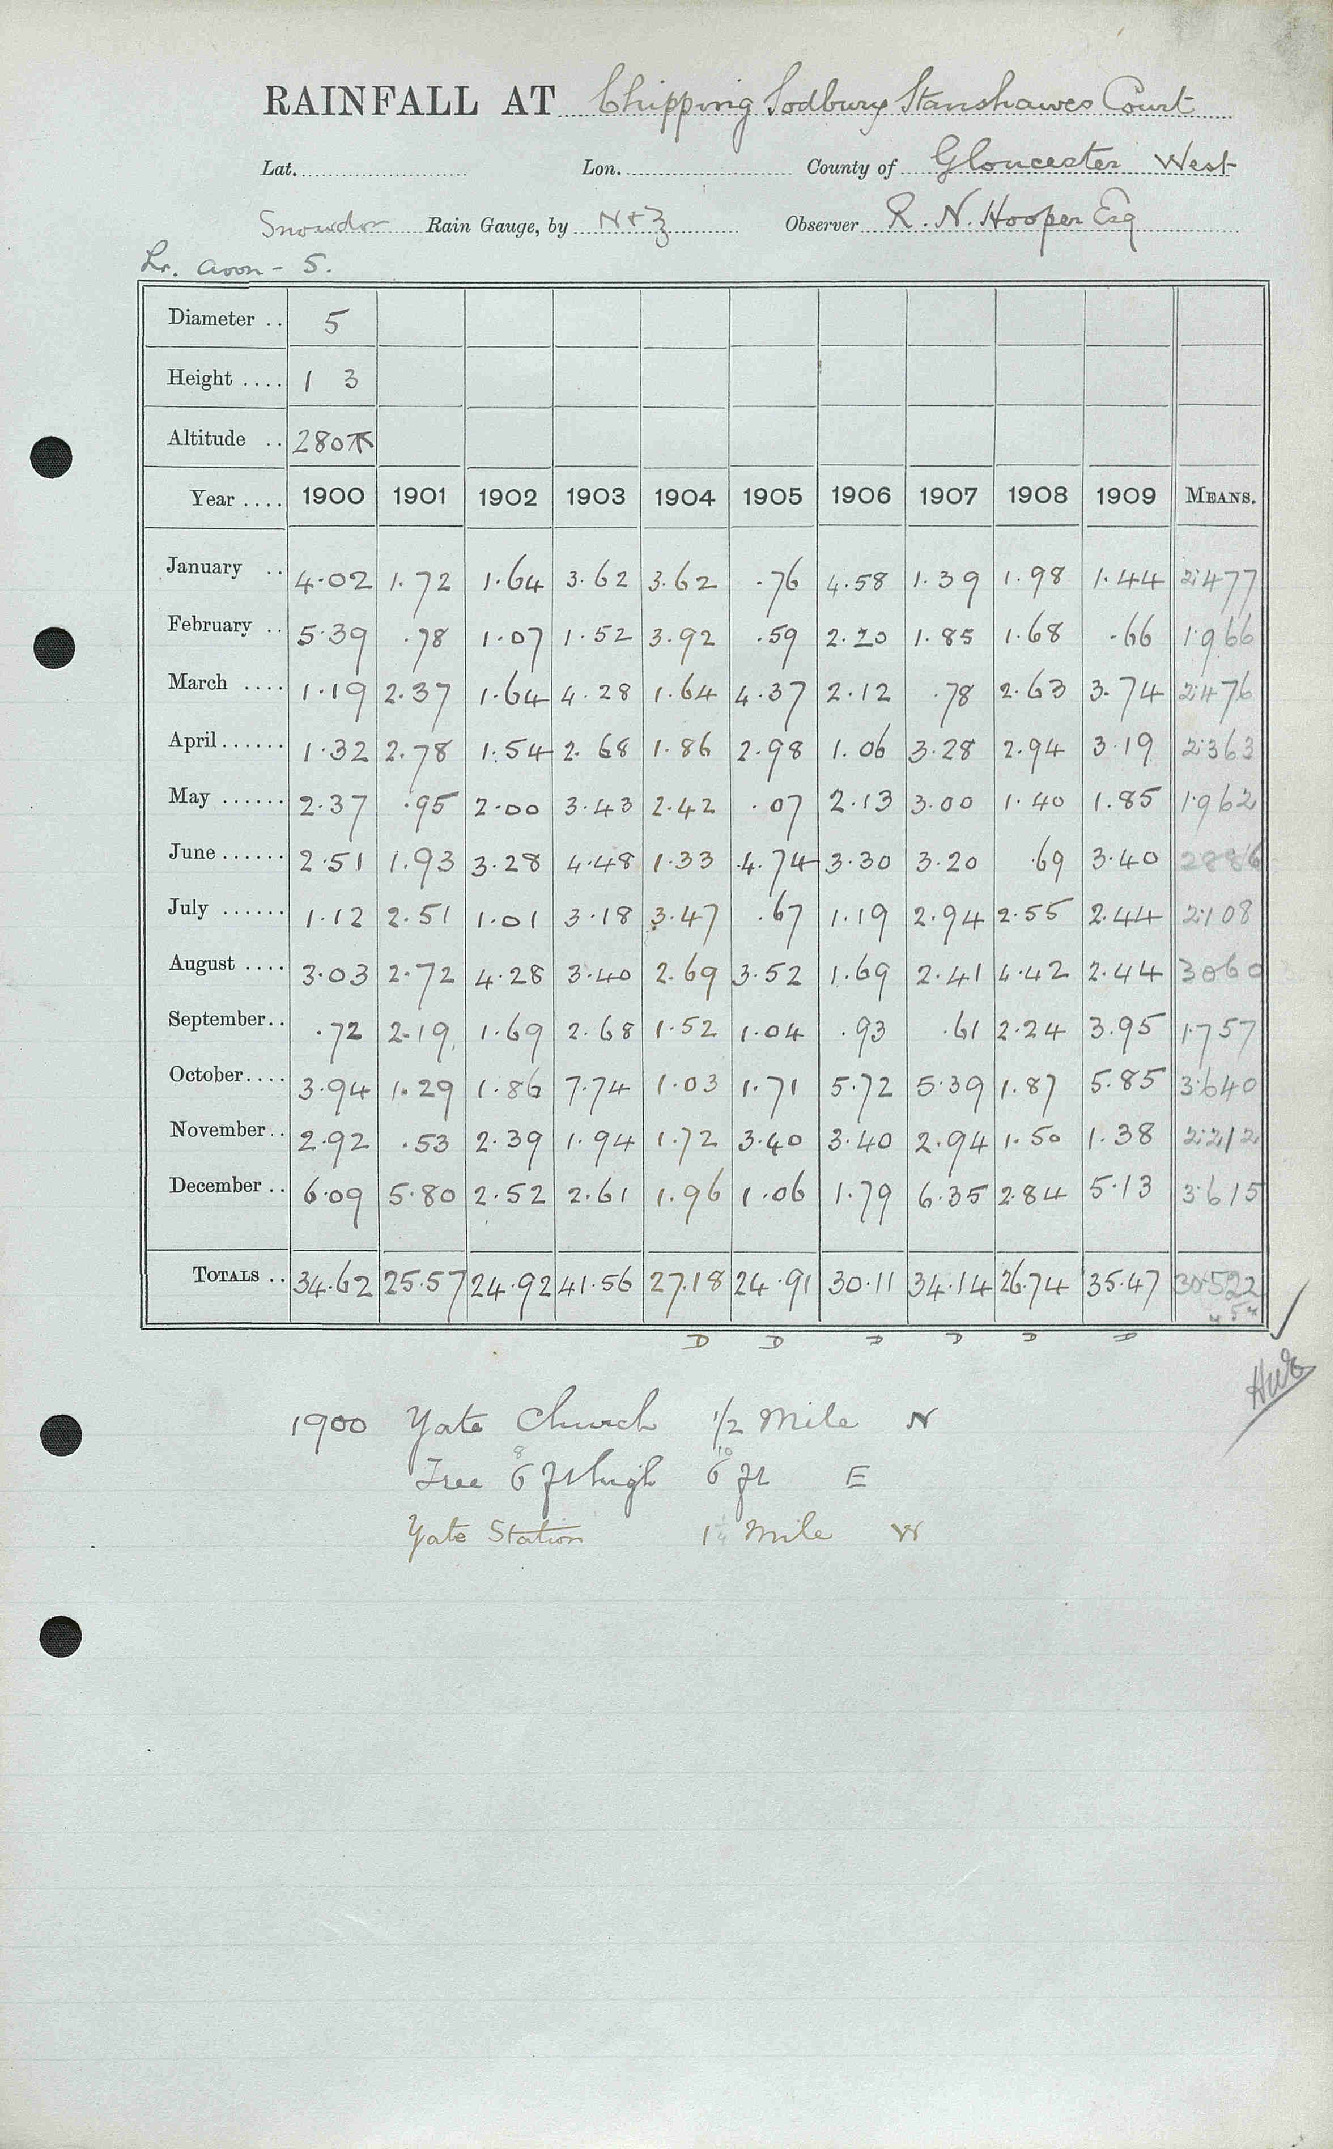 RAINFALL AT Chipping Sodbury Stanshawes Court
Lat. Lon. County of Gloucester West
Snowdon Rain Gauge, by N & Z Observer R. N. Hooper Esq
Lr. Avon - 5.
Diameter .. 5
Height .... 1 3
Altitude .. 280
Year .... 1900 1901 1902 1903 1904 1905 1906 1907 1908 1909 MEANS.
January .. 4.02 1.72 1.64 3.62 3.62 .76 4.58 1.39 1.98 1.44 2.477
February .. 5.39 .78 1.07 1.52 3.92 .59 2.20 1.85 1.68 .66 1.966
March .... 1.19 2.37 1.64 4.28 1.64 4.37 2.12 .78 2.63 3.74 2.476
April ...... 1.32 2.78 1.54 2.68 1.86 2.98 1.06 3.28 2.94 3.19 2.363
May ...... 2.37 .95 2.00 3.43 2.42 .07 2.13 3.00 1.40 1.85 1.962
June ...... 2.51 1.93 3.28 4.48 1.33 4.74 3.30 3.20 .69 3.40 2886
July ...... 1.12 2.51 1.01 3.18 3.47 .67 1.19 2.94 2.55 2.44 2.108
August .... 3.03 2.72 4.28 3.40 2.69 3.52 1.69 2.41 4.42 2.44 3060
September.. .72 2.19 1.69 2.68 1.52 1.04 .93 .61 2.24 3.95 1.757
October.... 3.94 1.29 1.86 7.74 1.03 1.71 5.72 5.39 1.87 5.85 3.640
November.. 2.92 .53 2.39 1.94 1.72 3.40 3.40 2.94 1.50 1.38 2.212
December .. 6.09 5.80 2.52 2.61 1.96 1.06 1.79 6.35 2.84 5.13 3.615
TOTALS .. 34.62 25.57 24.92 41.56 27.18 24.91 30.11 34.14 26.74 35.47 30.522
D D D D D D
1900 Yate Church 1/2 Mile N
8 10
Tree 6 ft high 6 ft E
Yate Station 1 1/4 Mile W